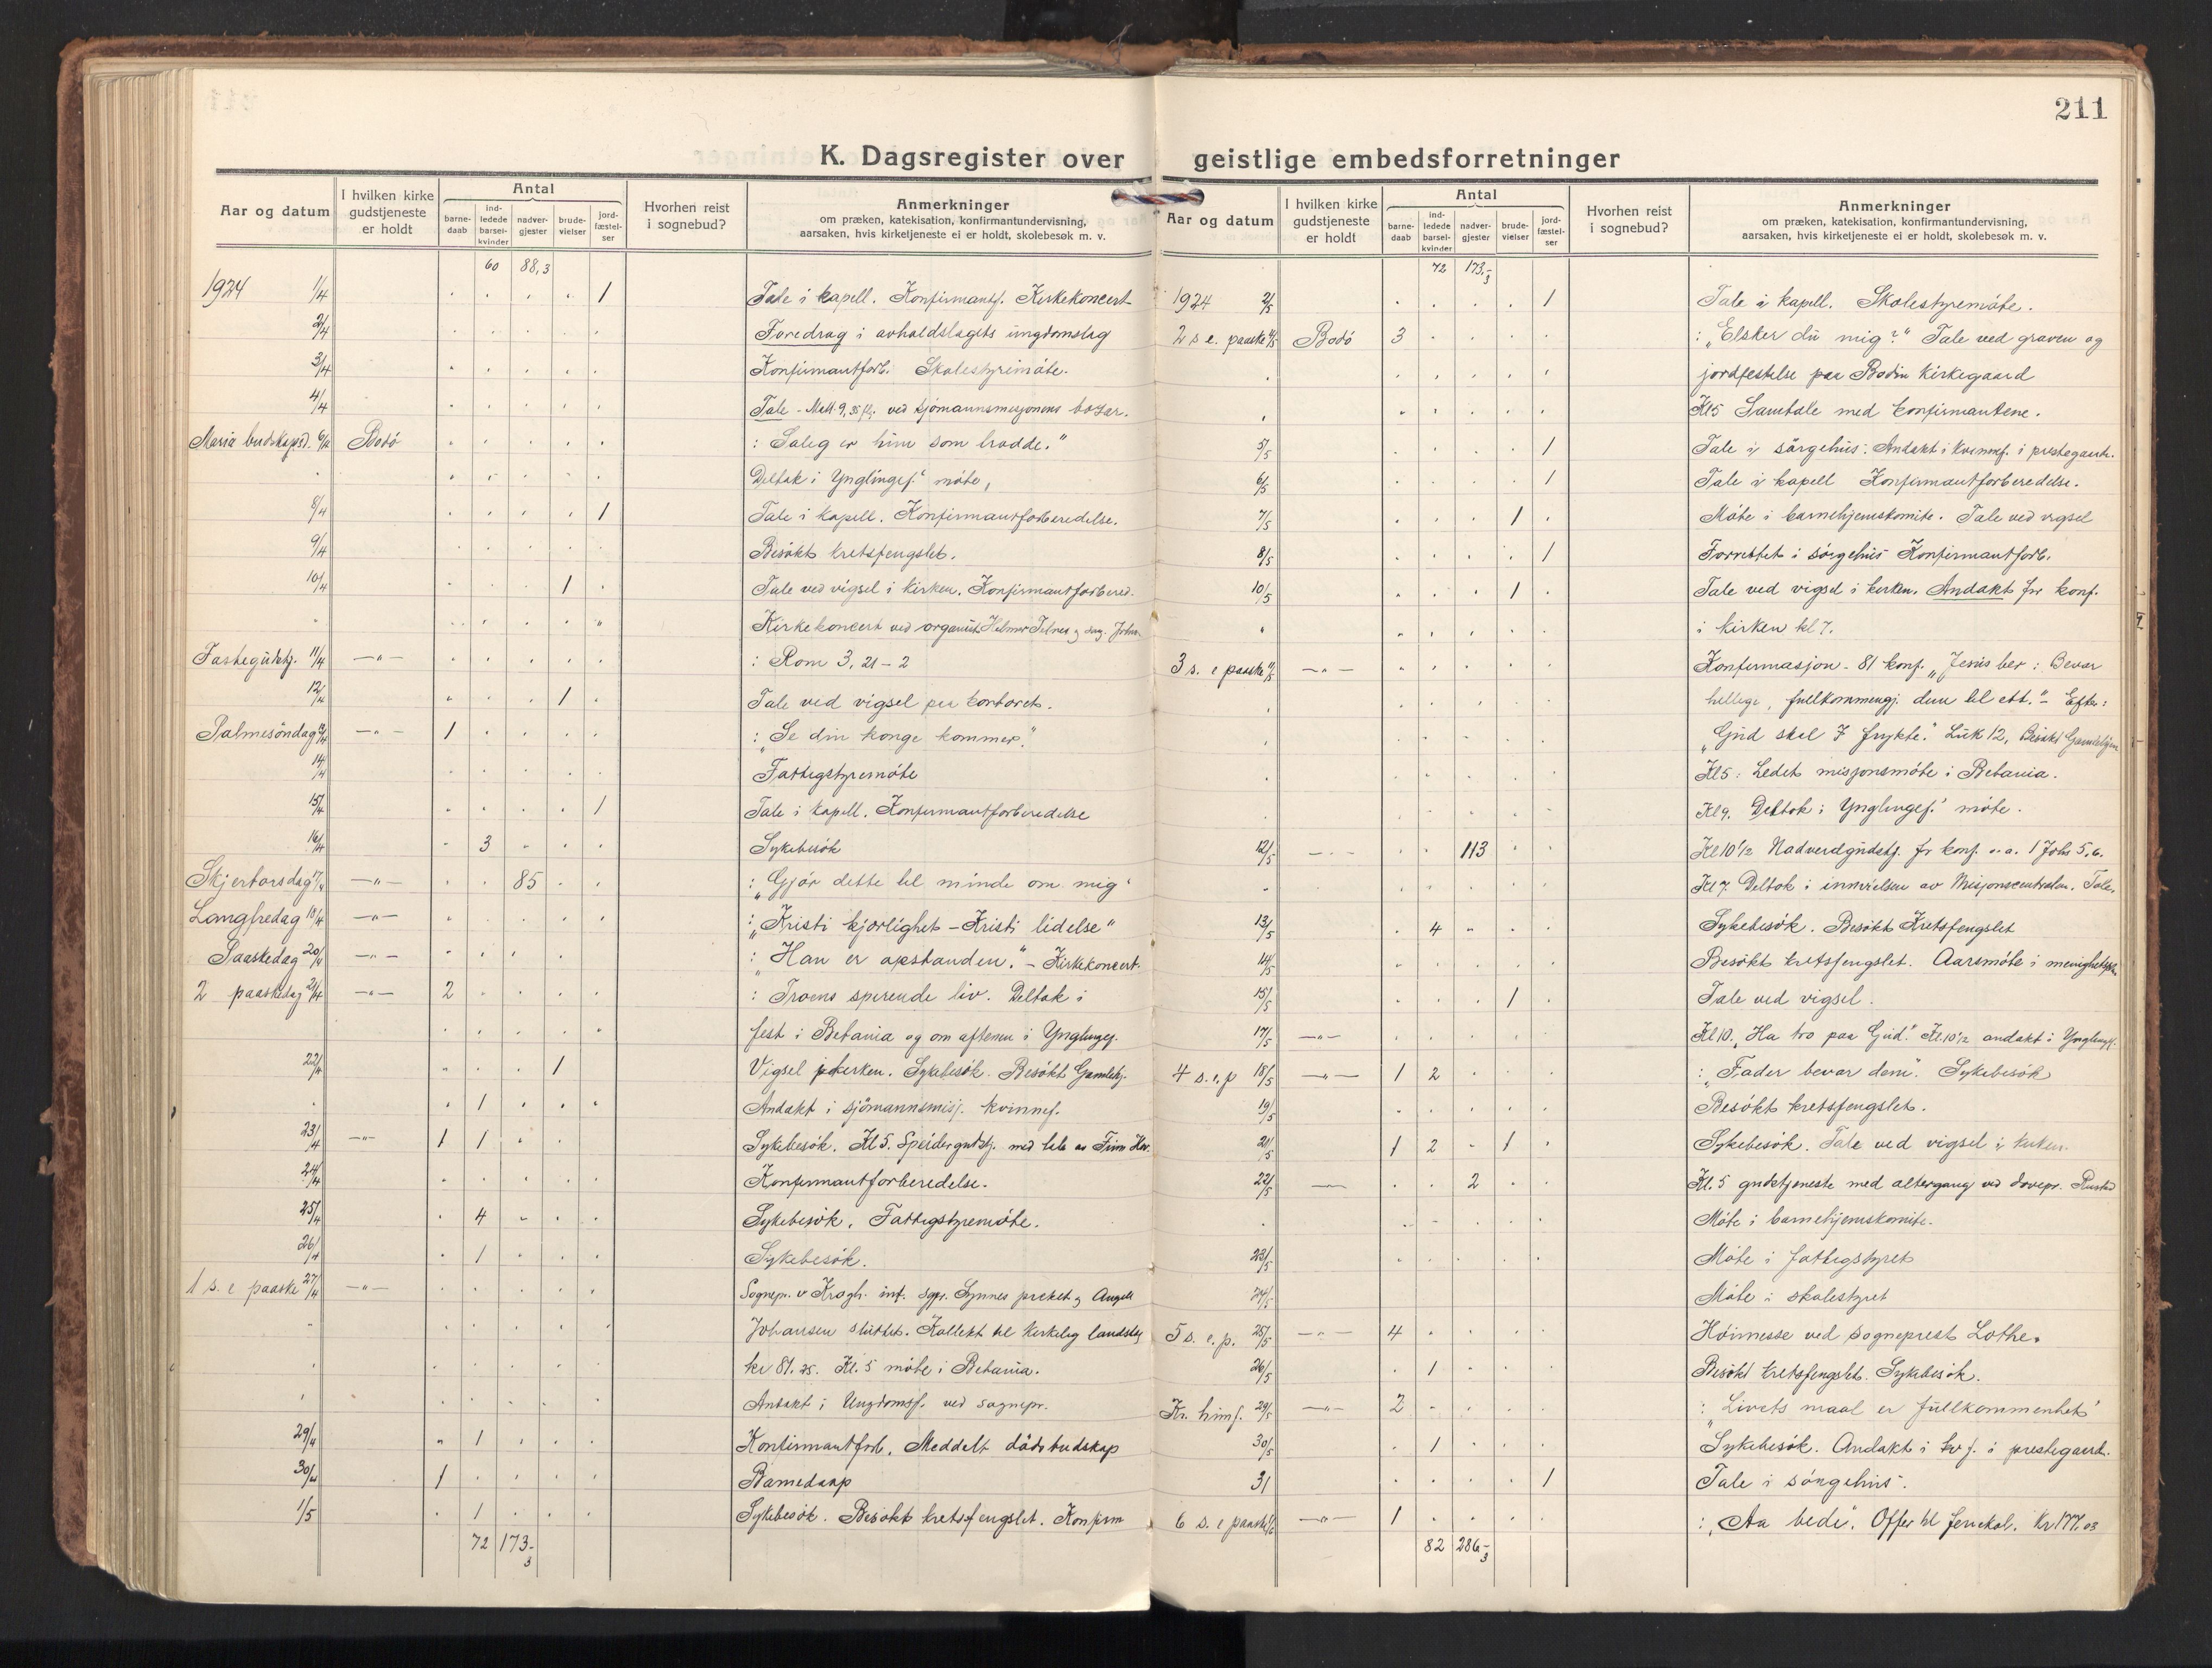 211
K. Dagsregister over geistlige embedsforretninger
Aar og datum | I hvilken kirke gudstjeneste er holdt | Antal | barne-daab | ind-ledede barsel-kvinder | nadver-gjester | brude-vielser | jord-fæstel-ser | Hvorhen reist i sognebud? | Anmerkninger om præken, katekisation, konfirmantundervisning, aarsaken, hvis kirketjeneste ei er holdt, skolebesøk m. v.
60 88,3
1924 1/4 1 Tale i kapell. Konfirmantf. Kirkekoncert
2/4 Foredrag i avholdslagets ungdomslag
3/4 Konfirmantforb. Skolestyremöte.
4/4 Tale - Matt. 9, 35 flg. ved sjömannsmisjonens basar.
Maria budskapsd. 6/4 Bodö : Saleg er hun som trodde."
Deltok i Ynglingef. möte,
8/4 1 Tale i kapell. Konfirmantforberedelse.
9/4 Besökt kretsfengslet.
10/4 1 Tale ved vigsel i kirken. Konfirmantforbered.
Kirkekoncert ved organist Helmer
Fastegudstj. 11/4 —"— : Rom 3, 21-2
12/4 1 Tale ved vigsel paa kontoret.
Palmesöndag 13/4 —"— 1 : "Se din konge kommer."
14/4 Fattigstyremöte
15/4 1 Tale i kapell. Konfirmantforberedelse
16/4 3 Sykebesök
Skjertorsdag 17/4 —"— 85 : "Gjör dette til minde om mig"
Langfredag 18/4 —"— : "Kristi kjærlighet – Kristi lidelse"
Paaskedag 20/4 —"— : "Han er opstanden." – Kirkekoncert.
2 paaskedag 21/4 —"— 2 : Troens spirende liv. Deltok i
fest i Betania og om aftenen i Ynglingef.
22/4 1 Vigsel i kirken. Sykebesök. Besökt Gamlehj.
1 Andakt i sjömannsmisj. kvinnef.
23/4 —"— 1 1 Sykebesök. Kl 5. Speidergudstj. med tale av Finn
24/4 Konfirmantforberedelse.
25/4 4 Sykebesök. Fattigstyremöte.
26/4 1 Sykebesök.
1 s. e paaske 27/4 —"— Sognepr. v Krogh. inf. sgpr. Synnes preket og Angell
Johansen sluttet. Kollekt til Kirkelig landslag
kr 81.25. Kl. 5 möte i Betania.
Andakt i Ungdomsf. ved sognepr.
29/4 1 Konfirmantforb. Meddelt dödsbudskap
30/4 1 Barnedaap
1/5 1 Sykebesök. Besökt kretsfengslet. Konfirm
72 173-3
Aar og datum | I hvilken kirke gudstjeneste er holdt | Antal | barne-daab | ind-ledede barsel-kvinder | nadver-gjester | brude-vielser | jord-fæstel-ser | Hvorhen reist i sognebud? | Anmerkninger om præken, katekisation, konfirmantundervisning, aarsaken, hvis kirketjeneste ei er holdt, skolebesøk m. v.
72 173-3
1924 2/5 1 Tale i kapell. Skolestyremöte.
2 s e. paaske 4/5 Bodö 3 : "Elsker du mig?" Tale ved graven og
jordfestelse paa Bodin Kirkegaard
Kl 5 Samtale med konfirmantene.
5/5 1 Tale i sörgehus. Andakt i kvinnef. i prestegaarden.
6/5 1 Tale i kapell Konfirmantforberedelse.
7/5 1 Möte i barnehjemskomite. Tale ved vigsel
8/5 1 Forrettet i sörgehus Konfirmantforb.
10/5 1 Tale ved vigsel i kirken. Andakt for konf.
i kirken kl 7.
3 s. e paaske 11/5 —"— Konfirmasjon – 81 konf. "Jesus ber: Bevar
hellige, fullkommengj. dem til ett." – Efter:
"Gud skal I frykte." Luk 12, Besökt Gamlehjem
Kl 5: Ledet misjonsmöte i Betania.
Kl 9. Deltok i Ynglingef. möte.
12/5 113 Kl 10½ Nadverdgudstj. for konf. o. a. 1 Joh 5, 6.
Kl 7. Deltok i innvielsen av Misjonscentralen. Tale.
13/5 4 Sykebesök. Besökt Kretsfengslet
14/5 Besökt kretsfengslet. Aarsmöte i
15/5 1 Tale ved vigsel.
17/5 —"— Kl 10. "Ha tro paa Gud." Kl. 10½ andakt i Ynglingef.
4 s. e. p 18/5 —"— 1 2 : "Fader bevar dem". Sykebesök
19/5 Besökt kretsfengslet.
21/5 1 2 1 Sykebesök. Tale ved vigsel i kirken.
22/5 2 Kl. 5 gudstjeneste med altergang ved dövepr. Rustad
Möte i barnehjemskomite.
23/5 Möte i fattigstyret
24/5 Möte i skolestyret
5 s. e. p. 25/5 —"— 4 Höimesse ved sogneprest Lothe.
26/5 1 Besökt kretsfengslet. Sykebesök.
Kr. himf. 29/5 —"— 2 : "Livets maal er fullkommenhet"
30/5 1 Sykebesök. Andakt i kvf. i prestegaard.
31 1 Tale i sörgehus.
6 s. e paaske 1/6 —"— 1 : "Aa bede". Offer til Kr 177.03
82 286-3